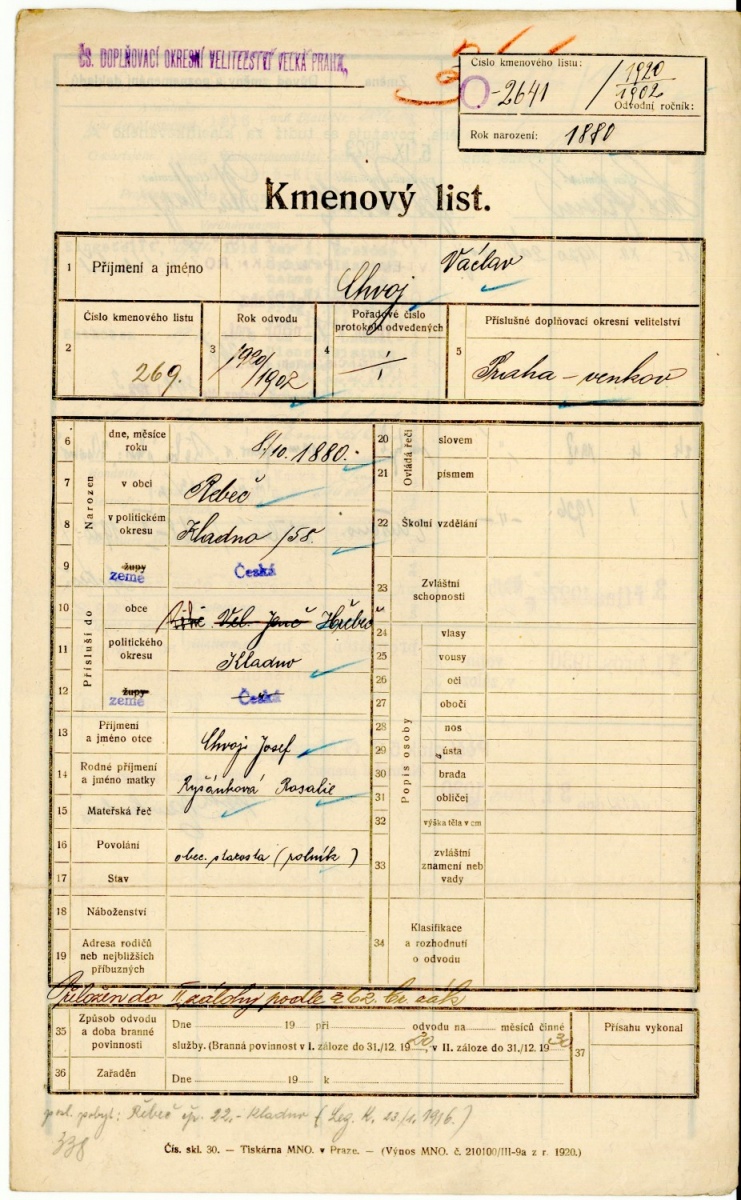 ČS. DOPLŇOVACÍ OKRESNÍ VELITELSTVÍ VELKÁ PRAHA,
Číslo kmenového listu:
O-2641 / 1920/1902
Odvodní ročník:
Rok narození: 1880
Kmenový list.
1 Příjmení a jméno Chvoj Václav
2 Číslo kmenového listu 269.
3 Rok odvodu 1920/1902
4 Pořadové číslo protokolu odvedených 1/1
5 Příslušné doplňovací okresní velitelství Praha-venkov
Narozen
6 dne, měsíce roku 8/10. 1880.
7 v obci Řebeč
8 v politickém okresu Kladno /58.
9 župy země Česká
Přísluší do
10 obce Vel. Jenč Hřebeč
11 politického okresu Kladno
12 župy země Česká
13 Příjmení a jméno otce Chvoj Josef
14 Rodné příjmení a jméno matky Ryšánková Rosalie
15 Mateřská řeč
16 Povolání obec. starosta (rolník)
17 Stav
18 Náboženství
19 Adresa rodičů neb nejbližších příbuzných
Ovládá řeči
20 slovem
21 písmem
22 Školní vzdělání
23 Zvláštní schopnosti
Popis osoby
24 vlasy
25 vousy
26 oči
27 obočí
28 nos
29 ústa
30 brada
31 obličej
32 výška těla v cm
33 zvláštní znamení neb vady
34 Klasifikace a rozhodnutí o odvodu
Přeložen do II zálohy podle § 62. br. zák
35 Způsob odvodu a doba branné povinnosti
Dne 19 při odvodu na měsíců činné
služby. (Branná povinnost v I. záloze do 31./12. 1920, v II. záloze do 31./12. 1930
36 Zařaděn
Dne 19 k
37 Přísahu vykonal
posl. pobyt: Řebeč čp. 22.- Kladno (Leg. K. 23/1. 1916.)
338
Čís. skl. 30. — Tiskárna MNO. v Praze. — (Výnos MNO. č. 210100/III-9a z r. 1920.)